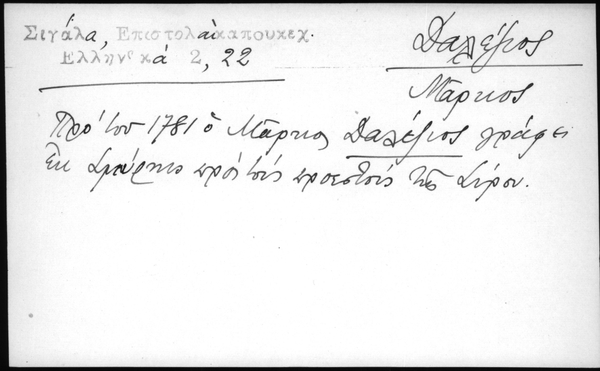 Σιγάλα, Επιστολαὶ καπουκεχ.
Ελληνικά 2, 22
Δαλέζιος
Μᾶρκος
Πρὸ τοῦ 1781 ὁ Μᾶρκος Δαλέζιος γράφει
ἐκ Σμύρνης πρὸς τοὺς προεστοὺς τῆς Σύρου.